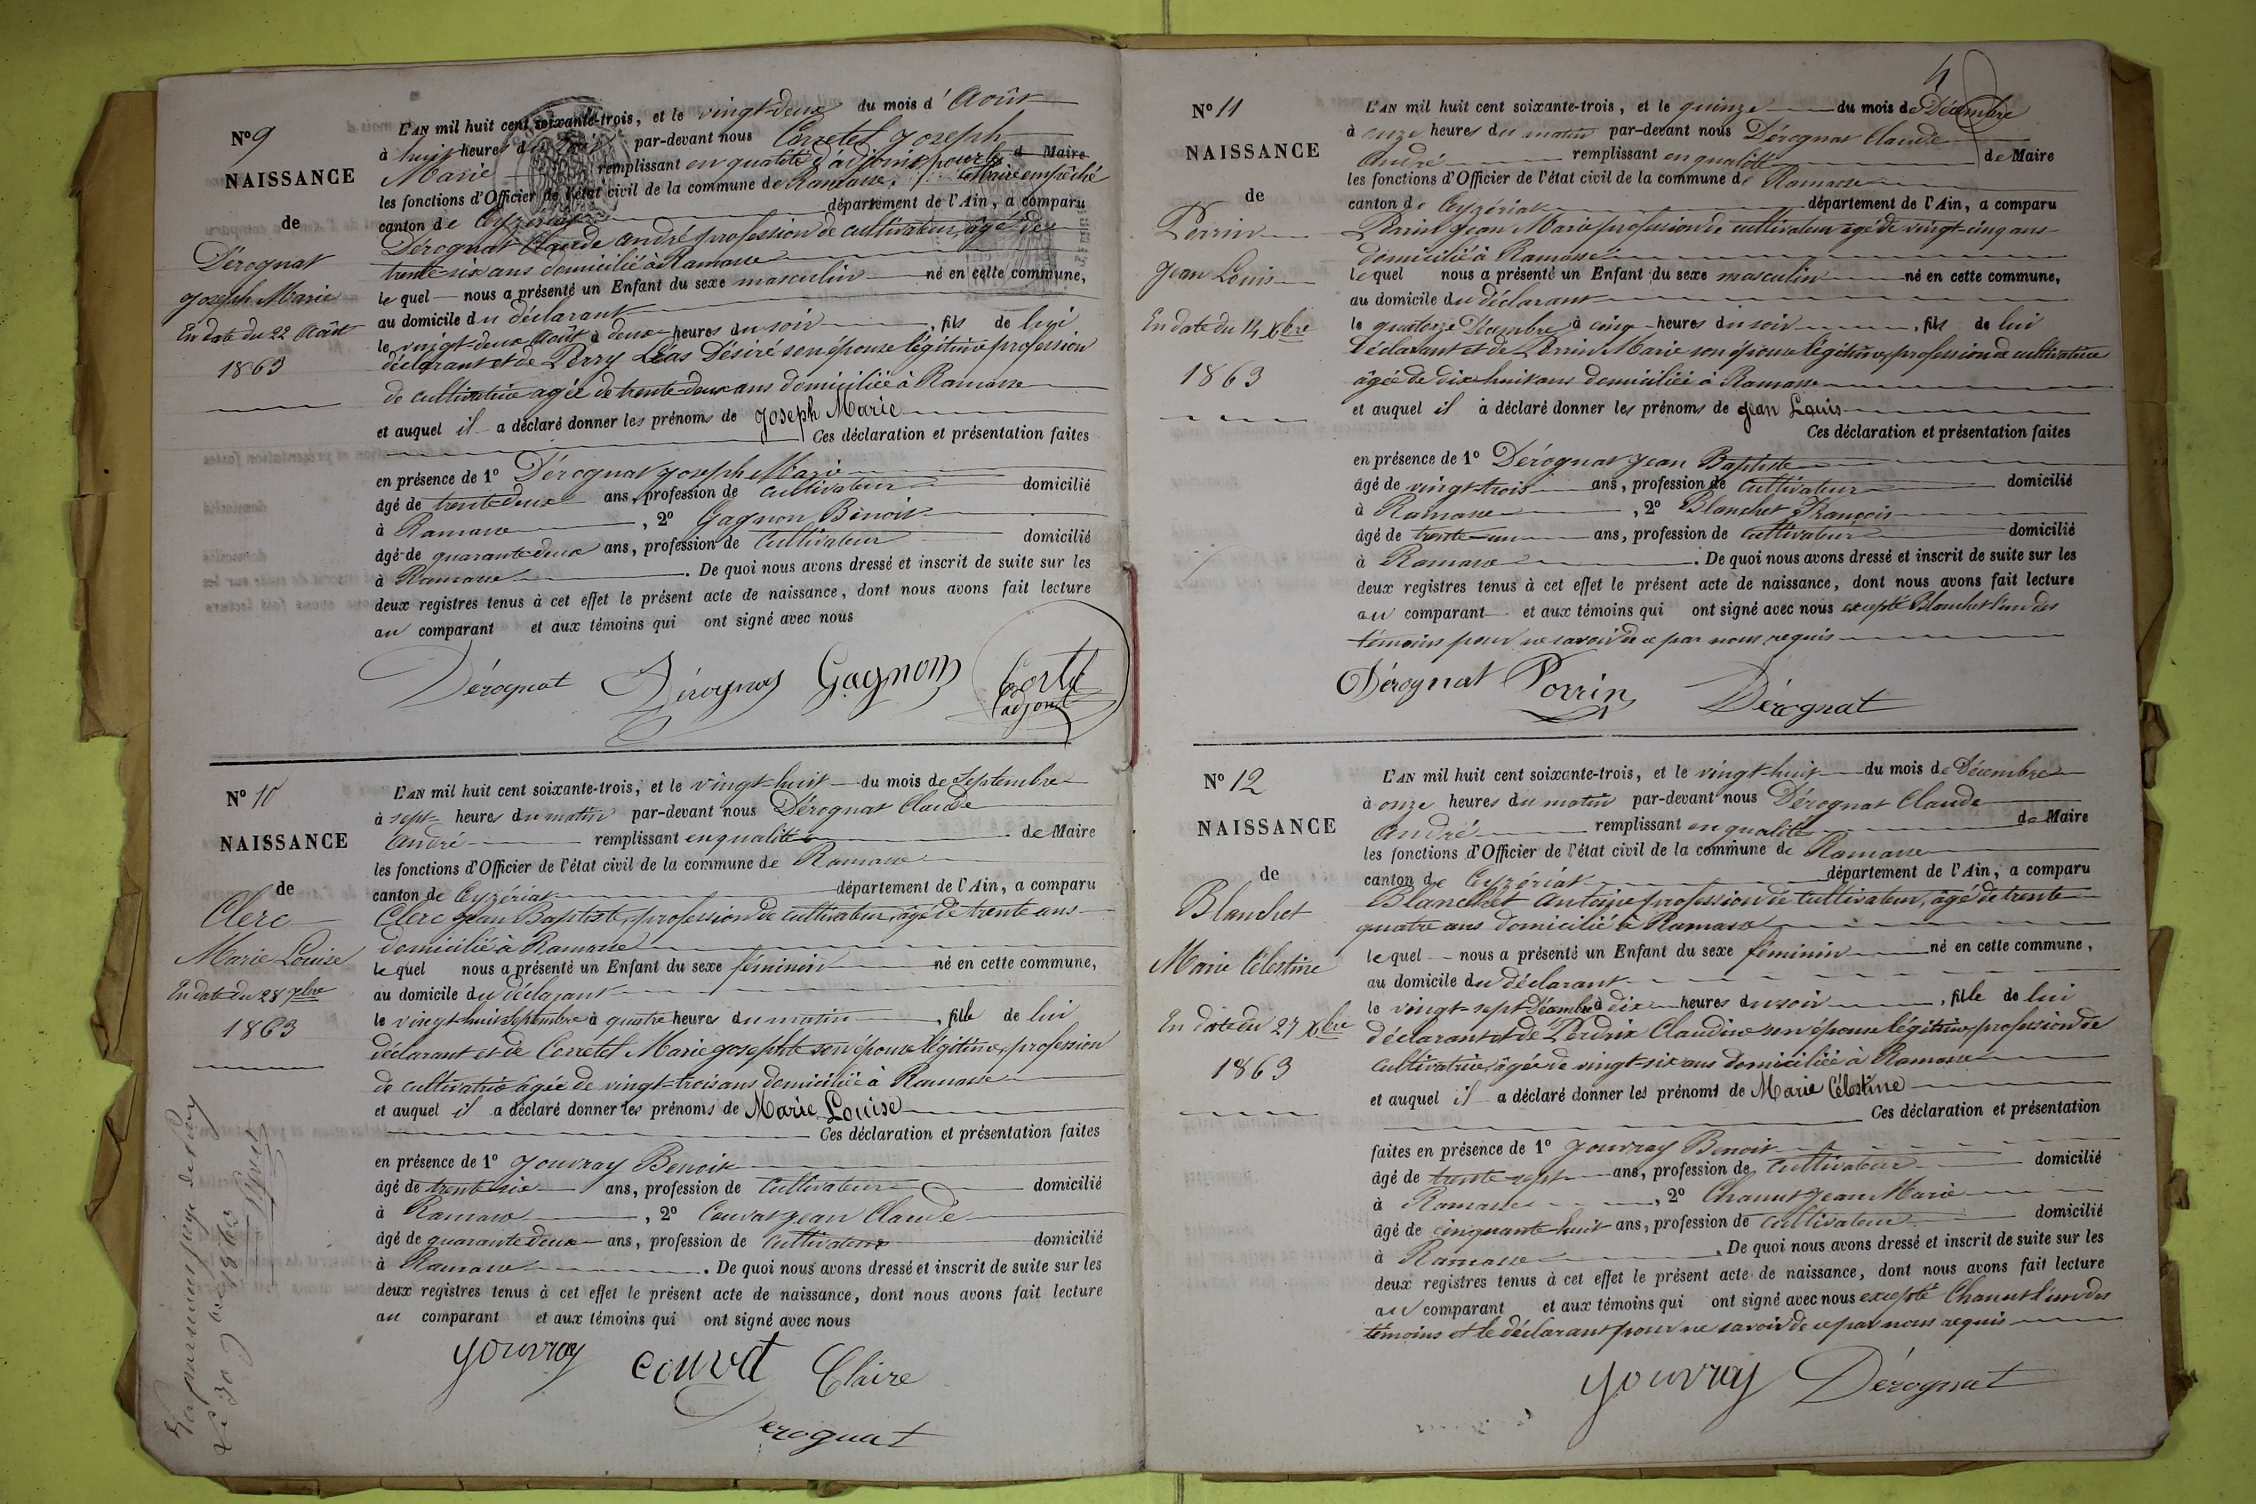 N° 9
NAISSANCE
de
Dérognat
Joseph Marie
En date du 22 Août
1863
L'AN mil huit cent soixante-trois, et le vingt-deux du mois d'Août
à huit heures du soir par-devant nous Corretel Joseph
Marie remplissant en qualité d'adjoint pour le d Maire
les fonctions d'Officier de l'état civil de la commune de Ramasse, Maire empêché
canton de Ceyzériat département de l'Ain, a comparu
Dérognat Claude André profession de cultivateur, âgé de
trente-six ans domicilié à Ramasse
lequel nous a présenté un Enfant du sexe masculin né en cette commune,
au domicile du déclarant
le vingt-deux Août à deux heures du soir, fils de lui
déclarant et de Perry Désiré son épouse légitime profession
de cultivatrice agée de trente-deux ans domiciliée à Ramasse
et auquel il a déclaré donner les prénoms de Joseph Marie
Ces déclaration et présentation faites
en présence de 1° Dérognat Joseph Marie
âgé de trente deux ans, profession de cultivateur domicilié
à Ramasse, 2° Gagnon Benoit
âgé de quarante deux ans, profession de Cultivateur domicilié
à Ramasse. De quoi nous avons dressé et inscrit de suite sur les
deux registres tenus à cet effet le présent acte de naissance, dont nous avons fait lecture
au comparant et aux témoins qui ont signé avec nous
Dérognat Dérognat Gagnom Cortel
adjoint
N° 10
NAISSANCE
de
Clerc
Marie Louise
En date du 28 7bre
1863
L'AN mil huit cent soixante-trois, et le vingt-huit du mois de Septembre
à sept heures du matin par-devant nous Dérognat Claude
André remplissant en qualité de Maire
les fonctions d'Officier de l'état civil de la commune de Ramasse
canton de Ceyzériat département de l'Ain, a comparu
Clerc Jean Baptiste, profession de cultivateur, âgé de trente ans
domicilié à Ramasse
lequel nous a présenté un Enfant du sexe féminin né en cette commune,
au domicile du déclarant
le vingt-huit septembre à quatre heures du matin, fille de lui
déclarant et de Corretel Marie Josephte son épouse légitime, profession
de cultivatrice âgée de vingt-trois ans domiciliée à Ramasse
et auquel il a déclaré donner les prénoms de Marie Louise
Ces déclaration et présentation faites
en présence de 1° Jouvray Benoit
âgé de trente six ans, profession de Cultivateur domicilié
à Ramasse, 2° Couvat Jean Claude
âgé de quarante deux ans, profession de cultivateur domicilié
à Ramasse. De quoi nous avons dressé et inscrit de suite sur les
deux registres tenus à cet effet le présent acte de naissance, dont nous avons fait lecture
au comparant et aux témoins qui ont signé avec nous
Jouvray couvat Claire
Derognat
juge de Paix
Le 30 9bre 1863
N° 11
NAISSANCE
de
Perrin
Jean Louis
En date du 14 Xbre
1863
L'AN mil huit cent soixante-trois, et le quinze du mois de Décembre
à onze heures du matin par-devant nous Dérognat Claude
André remplissant en qualité de Maire
les fonctions d'Officier de l'état civil de la commune de Ramasse
canton de Ceyzériat département de l'Ain, a comparu
Perrin Jean Marie profession de cultivateur agé de vingt-cinq ans
domicilié à Ramasse
lequel nous a présenté un Enfant du sexe masculin né en cette commune,
au domicile du déclarant
le quatorze Décembre à cinq heures du soir, fils de lui
déclarant et de Perrin Marie son épouse légitime, profession de cultivatrice
âgée de dix-huit ans domiciliée à Ramasse
et auquel il a déclaré donner les prénoms de Jean Louis
Ces déclaration et présentation faites
en présence de 1° Dérognat Jean Baptiste
âgé de vingt-trois ans, profession de Cultivateur domicilié
à Ramasse, 2° Blanchet François
âgé de trente-un ans, profession de cultivateur domicilié
à Ramasse. De quoi nous avons dressé et inscrit de suite sur les
deux registres tenus à cet effet le présent acte de naissance, dont nous avons fait lecture
au comparant et aux témoins qui ont signé avec nous excepté Blanchet l'un des
témoins pour ne savoir de ce par nous requis
Dérognat Perrin Dérognat
N° 12
NAISSANCE
de
Blanchet
Marie Célestine
En date du 27 Xbre
1863
L'AN mil huit cent soixante-trois, et le vingt-huit du mois de Décembre
à onze heures du matin par-devant nous Dérognat Claude
André remplissant en qualité de Maire
les fonctions d'Officier de l'état civil de la commune de Ramasse
canton de Ceyzériat département de l'Ain, a comparu
Blanchet Antoine profession de Cultivateur, âgé de trente
quatre ans domicilié à Ramasse
lequel nous a présenté un Enfant du sexe féminin né en cette commune,
au domicile du déclarant
le vingt-sept Décembre à dix heures du soir, fille de lui
déclarant et de Perdrix Claudine son épouse légitime profession de
cultivatrice, âgée de vingt-six ans domiciliée à Ramasse
et auquel il a déclaré donner les prénoms de Marie Célestine
Ces déclaration et présentation
faites en présence de 1° Jouvray Benoit
âgé de trente-sept ans, profession de Cultivateur domicilié
à Ramasse, 2° Chanut Jean Marie
âgé de cinquante-huit ans, profession de cultivateur domicilié
à Ramasse. De quoi nous avons dressé et inscrit de suite sur les
deux registres tenus à cet effet le présent acte de naissance, dont nous avons fait lecture
au comparant et aux témoins qui ont signé avec nous excepté Chanut l'un des
témoins et le déclarant pour ne savoir de ce par nous requis
Jouvray Dérognat